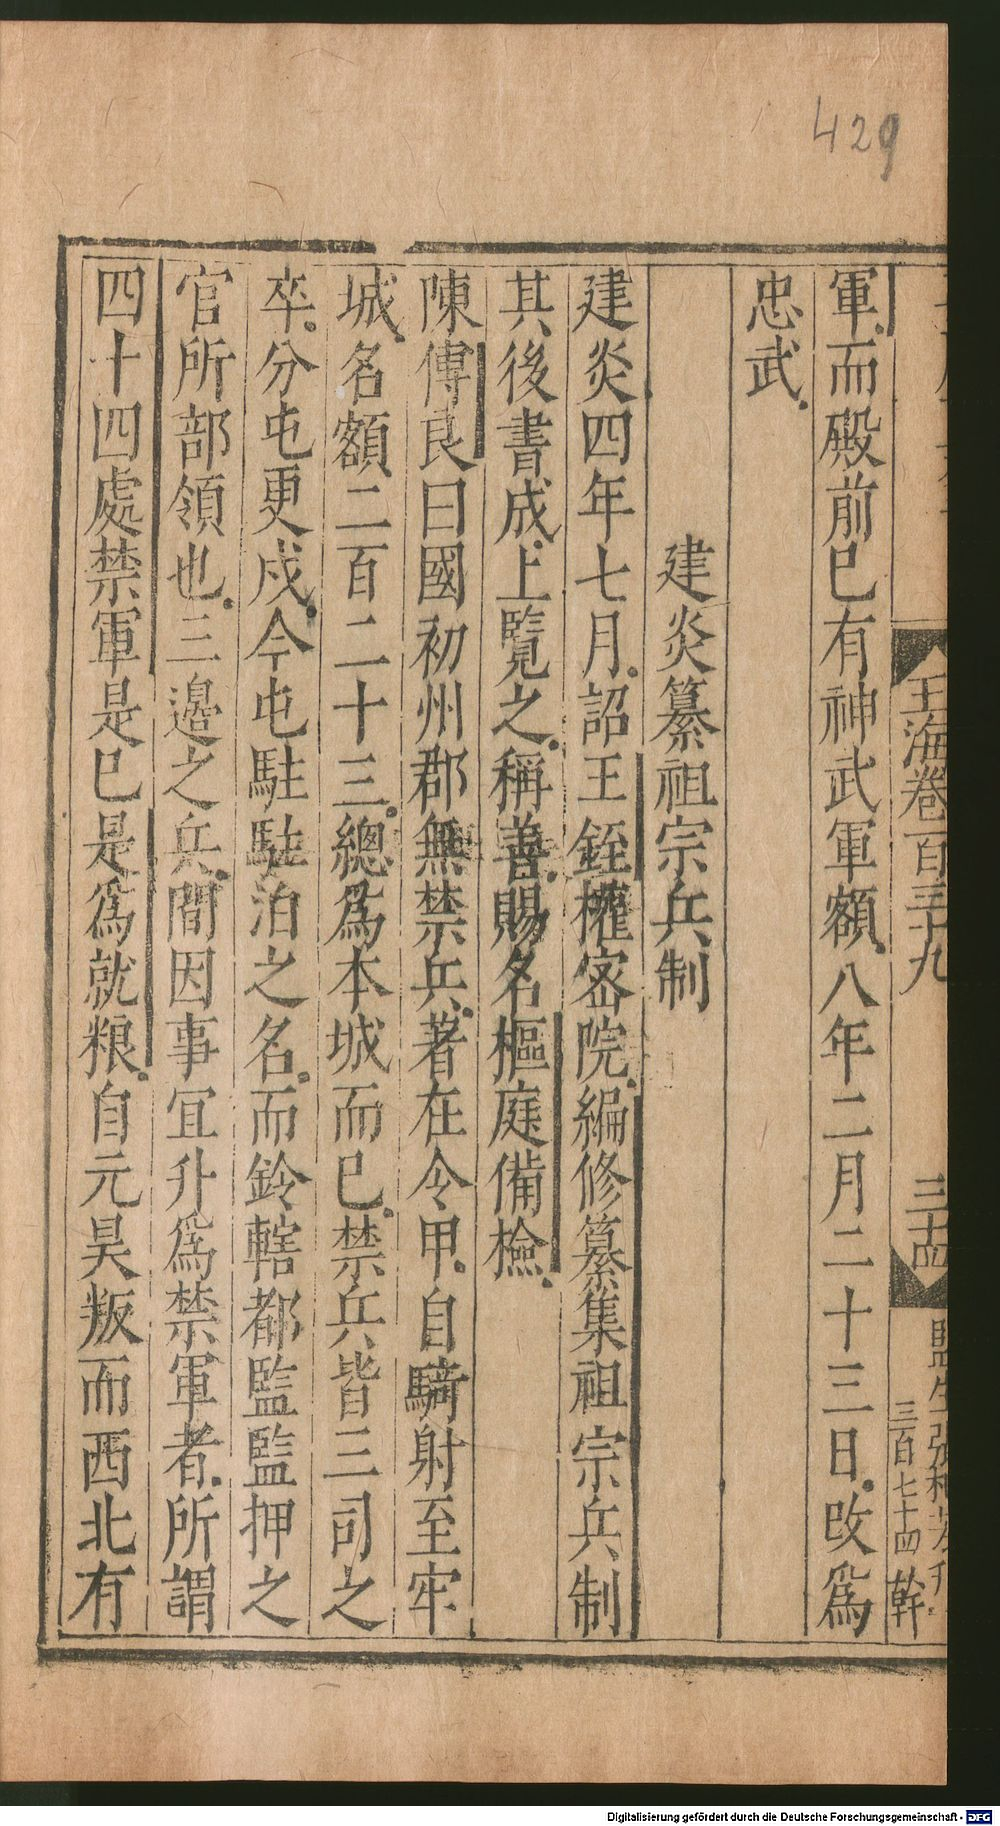 429
玉海卷百三十九
三十四
三百七十四
幹
軍而殿前已有神武軍額八年二月二十三日改爲
忠武
建炎纂祖宗兵制
建炎四年七月詔王銍權密院編修纂集祖宗兵制
其後書成上覽之稱善賜名樞庭備檢
陳傅良曰國初州郡無禁兵著在令甲自騎射至牢
城名額二百二十三總爲本城而已禁兵皆三司之
卒分屯更戍今屯駐駐泊之名而鈐轄都監監押之
官所部領也三邊之兵間因事冝升爲禁軍者所謂
四十四處禁軍是已是爲就粮自元昊叛而西北有
Digitalisierung gefördert durch die Deutsche Forschungsgemeinschaft - DFG